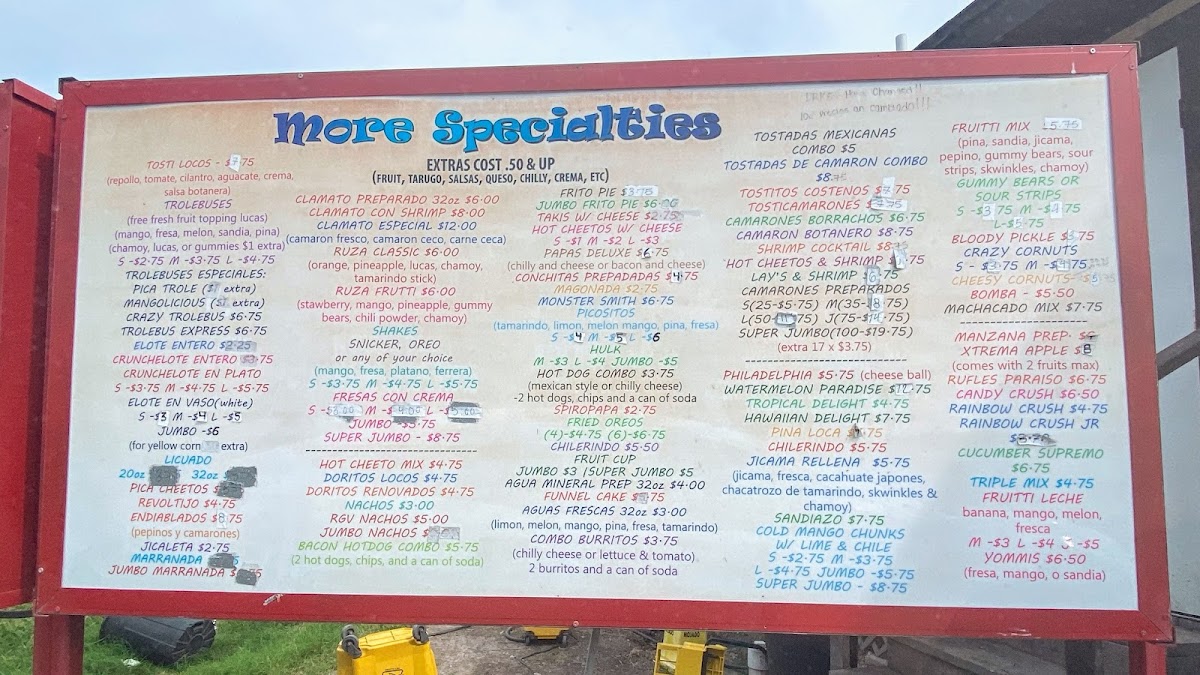 More Specialties
EXTRAS COST .50 & UP
(FRUIT, TARUGO, SALSAS, QUESO, CHILLY, CREMA, ETC)
TOSTI LOCOS - $7.75
(repollo, tomate, cilantro, aguacate, crema,
salsa botanera)
TROLEBUSES
(free fresh fruit topping lucas)
(mango, fresa, melon, sandia, pina)
(chamoy, lucas, or gummies $1 extra)
S -$2.75 M -$3.75 L -$4.75
TROLEBUSES ESPECIALES:
PICA TROLE ($1 extra)
MANGOLICIOUS ($1 extra)
CRAZY TROLEBUS $6.75
TROLEBUS EXPRESS $6.75
ELOTE ENTERO $2.25
CRUNCHELOTE ENTERO $3.75
CRUNCHELOTE EN PLATO
S -$3.75 M -$4.75 L -$5.75
ELOTE EN VASO(white)
S -$3 M -$4 L -$5
JUMBO -$6
(for yellow corn extra)
LICUADO
20oz 32oz
PICA CHEETOS $
REVOLTIJO $4.75
ENDIABLADOS $8.75
(pepinos y camarones)
JICALETA $2.75
MARRANADA
JUMBO MARRANADA $
CLAMATO PREPARADO 32oz $6.00
CLAMATO CON SHRIMP $8.00
CLAMATO ESPECIAL $12.00
(camaron fresco, camaron ceco, carne ceca)
RUZA CLASSIC $6.00
(orange, pineapple, lucas, chamoy,
tamarindo stick)
RUZA FRUTTI $6.00
(stawberry, mango, pineapple, gummy
bears, chili powder, chamoy)
SHAKES
SNICKER, OREO
or any of your choice
(mango, fresa, platano, ferrera)
S -$3.75 M -$4.75 L -$5.75
FRESAS CON CREMA
S -$3.00 M -$4.00 L -$5.00
JUMBO -$5.75
SUPER JUMBO - $8.75
HOT CHEETO MIX $4.75
DORITOS LOCOS $4.75
DORITOS RENOVADOS $4.75
NACHOS $3.00
RGV NACHOS $5.00
JUMBO NACHOS $
BACON HOTDOG COMBO $5.75
(2 hot dogs, chips, and a can of soda)
FRITO PIE $3.75
JUMBO FRITO PIE $6.00
TAKIS W/ CHEESE $2.75
HOT CHEETOS W/ CHEESE
S -$1 M -$2 L -$3
PAPAS DELUXE $6.75
(chilly and cheese or bacon and cheese)
CONCHITAS PREPADADAS $4.75
MAGONADA $2.75
MONSTER SMITH $6.75
PICOSITOS
(tamarindo, limon, melon mango, pina, fresa)
S -$4 M -$5 L -$6
HULK
M -$3 L -$4 JUMBO -$5
HOT DOG COMBO $3.75
(mexican style or chilly cheese)
-2 hot dogs, chips and a can of soda
SPIROPAPA $2.75
FRIED OREOS
(4)-$4.75 (6)-$6.75
CHILERINDO $5.50
FRUIT CUP
JUMBO $3 /SUPER JUMBO $5
AGUA MINERAL PREP 32oz $4.00
FUNNEL CAKE $.75
AGUAS FRESCAS 32oz $3.00
(limon, melon, mango, pina, fresa, tamarindo)
COMBO BURRITOS $3.75
(chilly cheese or lettuce & tomato)
2 burritos and a can of soda
TOSTADAS MEXICANAS
COMBO $5
TOSTADAS DE CAMARON COMBO
$8.75
TOSTITOS COSTENOS $7.75
TOSTICAMARONES $7.75
CAMARONES BORRACHOS $6.75
CAMARON BOTANERO $8.75
SHRIMP COCKTAIL $8
HOT CHEETOS & SHRIMP $.75
LAY'S & SHRIMP $.75
CAMARONES PREPARADOS
S(25-$5.75) M(35-$8.75)
L(50-.75) J(75-$14.75)
SUPER JUMBO(100-$19.75)
(extra 17 x $3.75)
PHILADELPHIA $5.75 (cheese ball)
WATERMELON PARADISE $12.75
TROPICAL DELIGHT $4.75
HAWAIIAN DELIGHT $7.75
PINA LOCA $.75
CHILERINDO $5.75
JICAMA RELLENA $5.75
(jicama, fresca, cacahuate japones,
chacatrozo de tamarindo, skwinkles &
chamoy)
SANDIAZO $7.75
COLD MANGO CHUNKS
W/ LIME & CHILE
S -$2.75 M -$3.75
L -$4.75 JUMBO -$5.75
SUPER JUMBO - $8.75
FRUITTI MIX $5.75
(pina, sandia, jicama,
pepino, gummy bears, sour
strips, skwinkles, chamoy)
GUMMY BEARS OR
SOUR STRIPS
S -$3.75 M -$4.75
L-$5.75
BLOODY PICKLE $5.75
CRAZY CORNUTS
S - $3.75 M -$4.75
CHEESY CORNUTS -$5.75
BOMBA - $5.50
MACHACADO MIX $7.75
MANZANA PREP- $6
XTREMA APPLE $8
(comes with 2 fruits max)
RUFLES PARAISO $6.75
CANDY CRUSH $6.50
RAINBOW CRUSH $4.75
RAINBOW CRUSH JR
$3.75
CUCUMBER SUPREMO
$6.75
TRIPLE MIX $4.75
FRUITTI LECHE
banana, mango, melon,
fresca
M -$3 L -$4 J -$5
YOMMIS $6.50
(fresa, mango, o sandia)